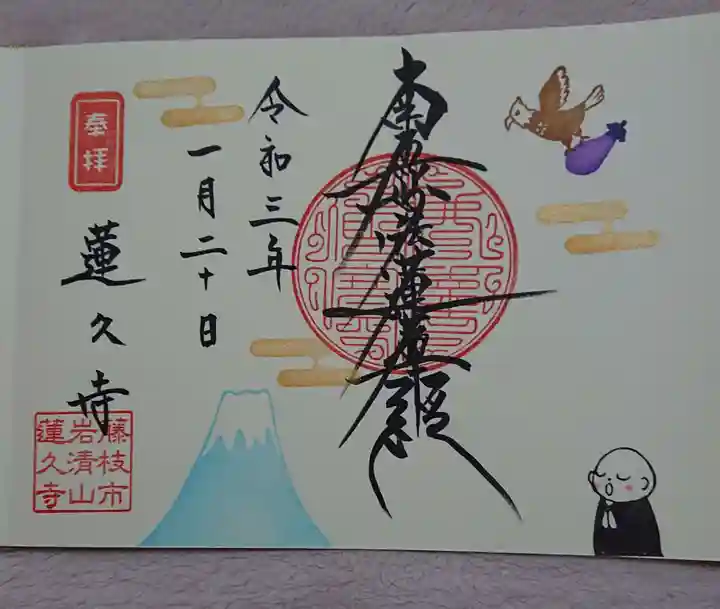 南無妙法蓮華経
令和三年
一月二十日
奉拝
蓮久寺
藤枝市
岩清山
蓮久寺